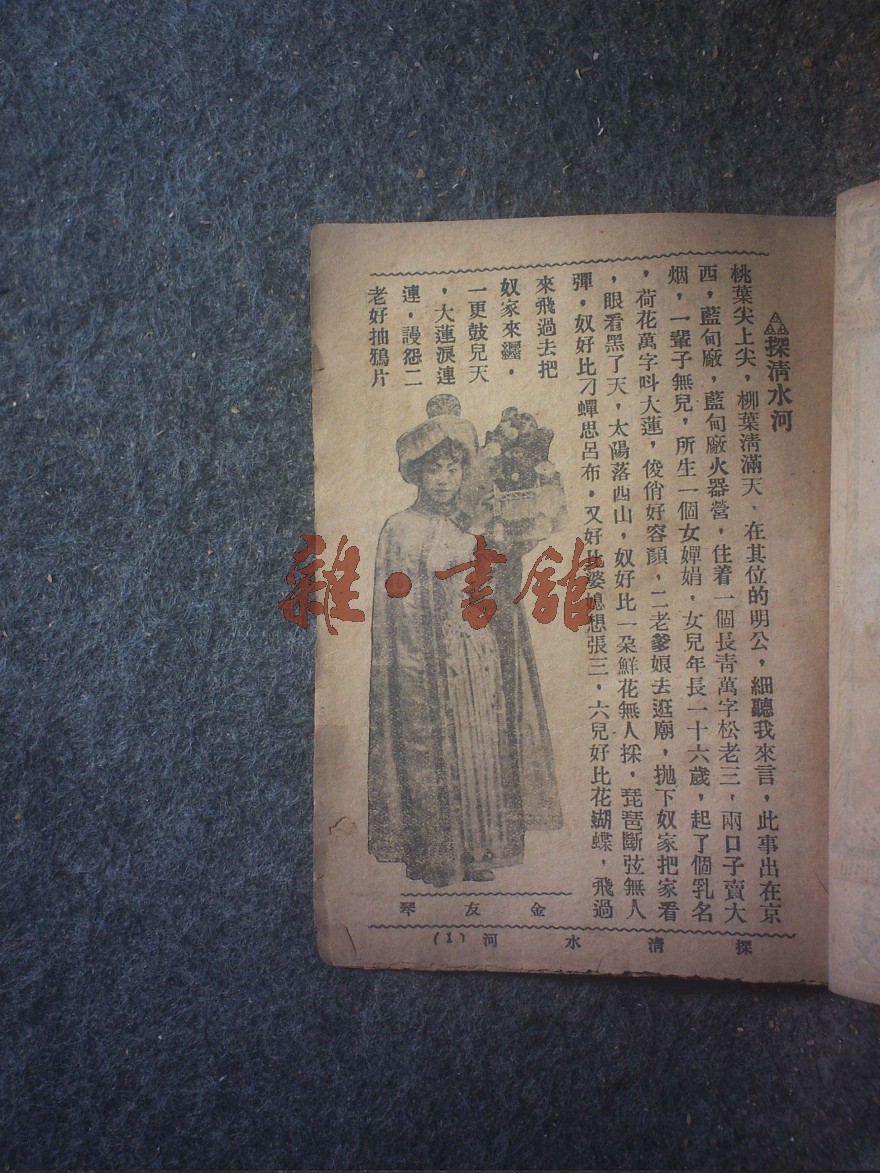 探清水河
桃葉尖上尖，柳葉淸滿天、在其位的明公，細聽我來言，此事出在京
西，藍甸廠，藍甸廠火器營，住着一個長靑萬字松老三，兩口子賣大
烟，一輩子無兒，所生一個女嬋娟，女兒年長一十六歲，起了個乳名
，荷花萬字呌大蓮，俊俏好容顏，二老爹娘去逛廟，拋下奴家把家看
，眼看黑了天，太陽落西山，奴好比一朶鮮花無人採，琵琶斷弦無人
彈，奴好比刁蟬思呂布，又好比婆媳想張三，六兒好比花蝴蝶，飛過
來飛過去把
奴家來纒，
一更鼓兒天
，大蓮淚連
連，謾怨二
老好抽鴉片
金友琴
探清水河
(1)
雜·書館